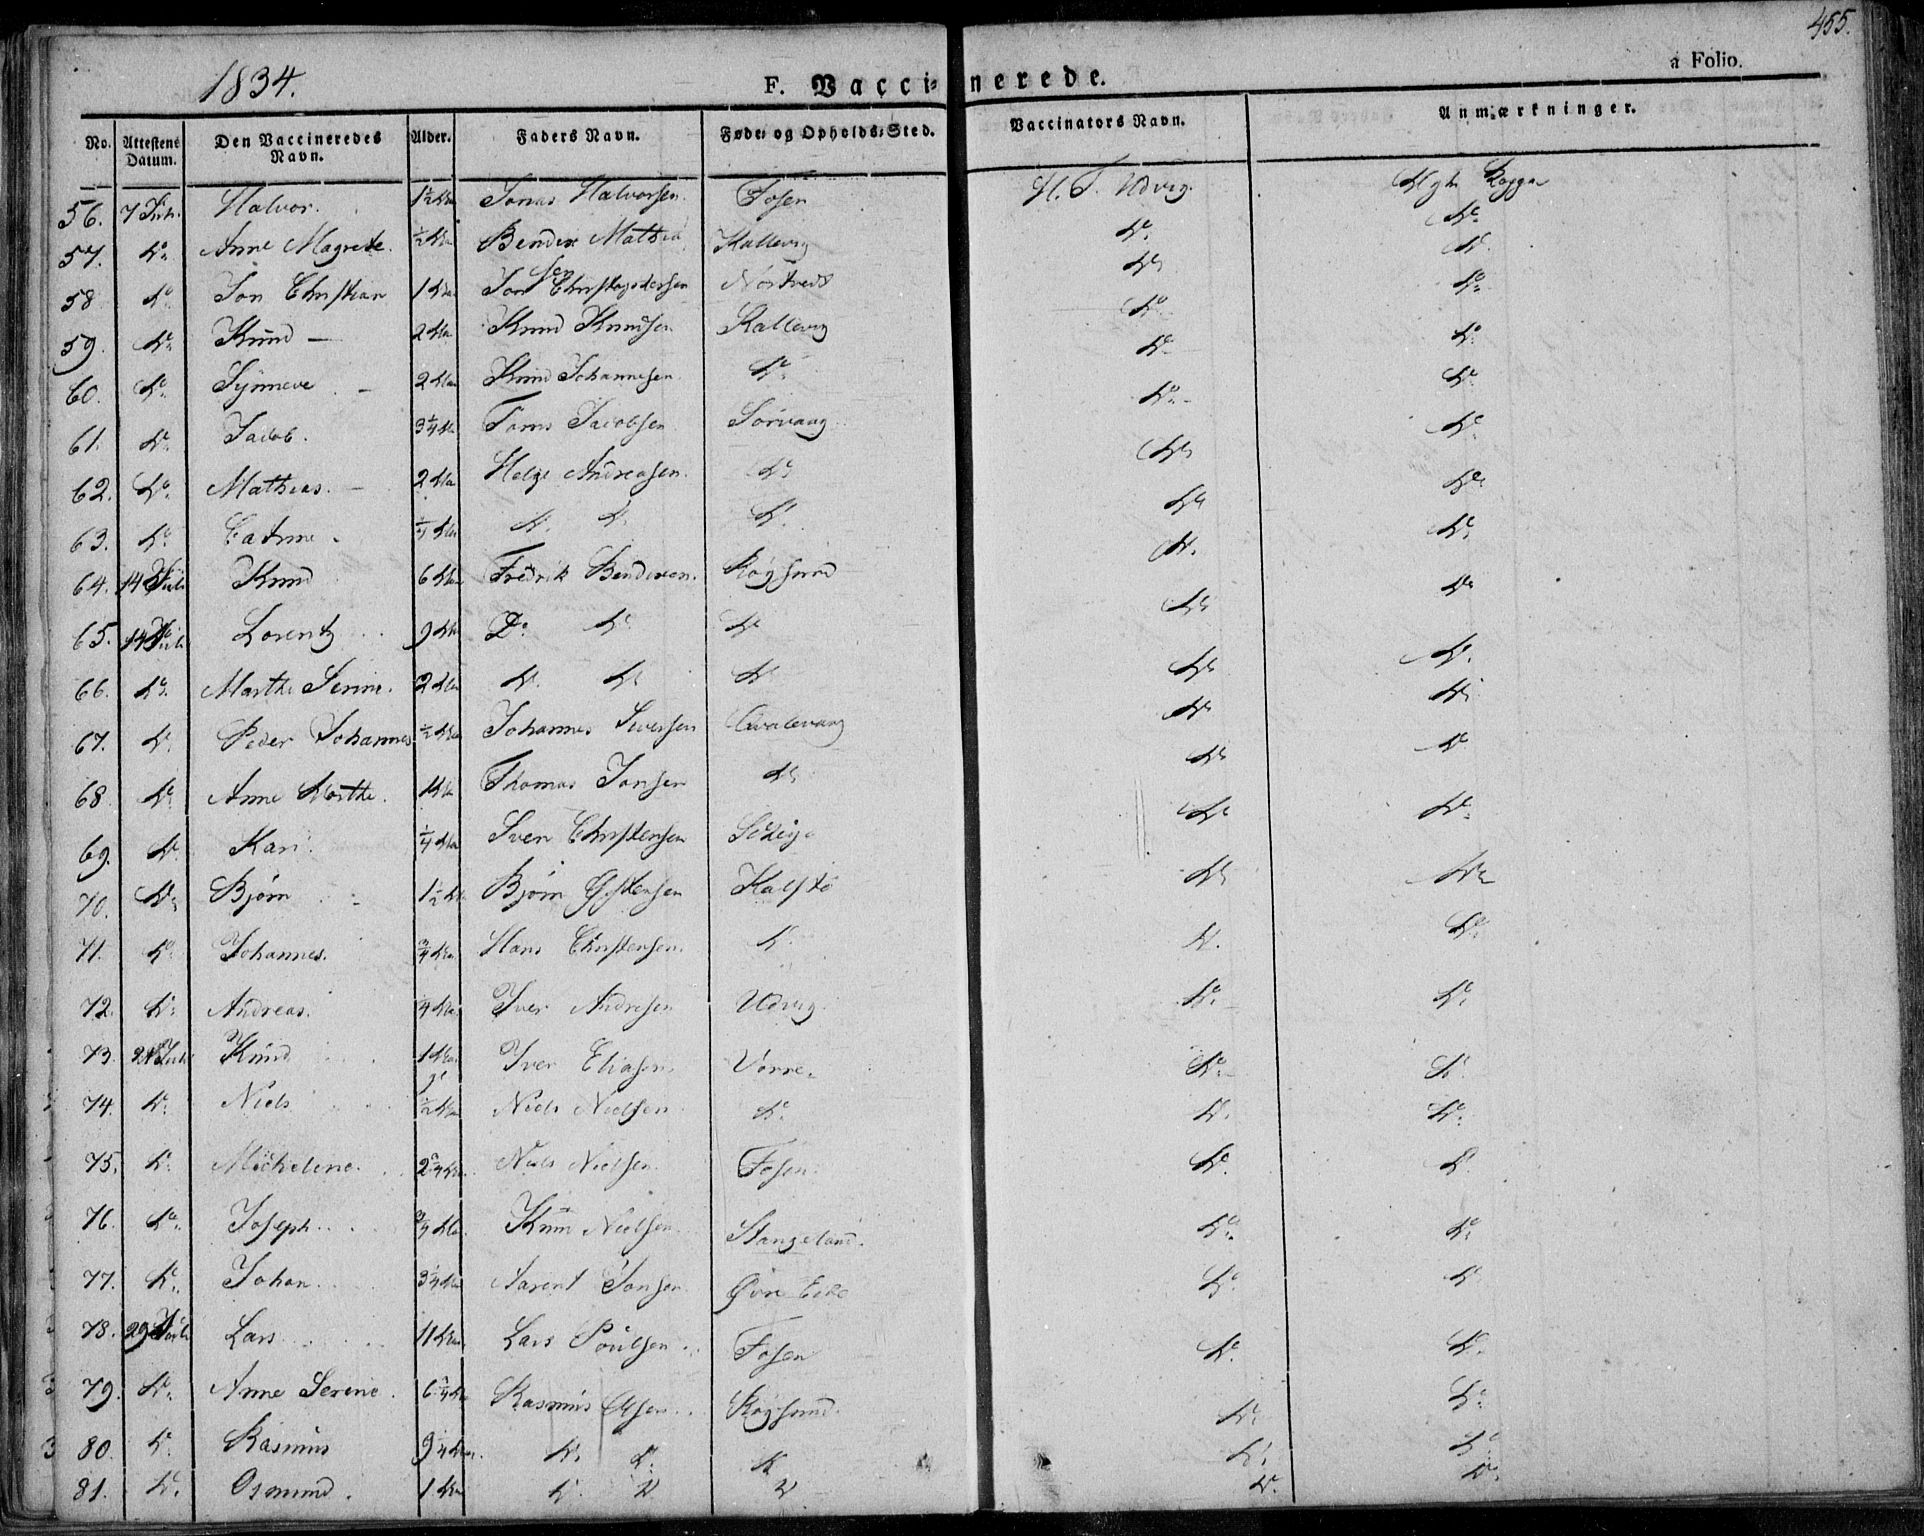 455.
1834.
F. Vaccinerede.
a Folio.
No. Attestens Datum. Den Vaccineredes Navn. Alder. Faders Navn. Føde- og Opholds-Sted. Vaccinators Navn. Anmærkninger.
56. 7 Juli Halvor. 1½ Jonas Halvorsen Fosen H. T. Udvig.
57. Do Anne Magrete. ½ Bendix Mathiasen Kallevig Do Do
58 Do Jon Christian 1 Jon Christophersen Nostvedt Do Do
59 Do Knud — 2 Knud Knudsen Kallevig Do Do
60. Do Synneve — 2 Knud Johannesen Do Do Do
61. Do Jacob. 3¼ Jacobsen Sørvaag Do Do
62. Do Mathias. — 2 Helge Andreasen Do Do Do
63. Do Catrine. ¼ Do Do Do Do Do
64. 14 Juli Knud 6 Fredrik Bendixen. Røgsund Do Do
65. 14 Juli Lorentz 9 Do Do Do Do Do
66. Do Marthe Serine. 2 Do Do Do Do Do
67. Do Peder Johannes. ½ Johannes Siversen Qvalevaag Do Do
68 Do Anne Marthe. 1 Thomas Jansen Do Do Do
69. Do Kari ¼ Sven Christensen Do Do
70. Do Bjørn 1½ Bjørn Kalstø Do Do
71. Do Johannes. ¾ Hans Christensen. Do Do Do
72. Do Andreas. 4 Iver Andresen Udvig Do Do
73. 21 Juli Knud 1 Iver Eliasen Vorre. Do Do
74. Do Niels ½ Niels Nielsen Do Do Do
75. Do Micheline. 2¼ Niels Nielsen Fosen. Do Do
76. Do Joseph ¾ Knud Nielsen Stangeland. Do Do
77. Do Johan 3¼ Aarent Jansen Øvre Eide Do Do
78. 29 Juli Lars 11 Lars Poulsen Fosen Do Do
79. Do Anne Serine. 6¼ Rasmus Olsen Røgsund. Do Do
80. Do Rasmus 9¼ Do Do Do Do Do
81. Do Osmund. 1 Do Do Do Do Do